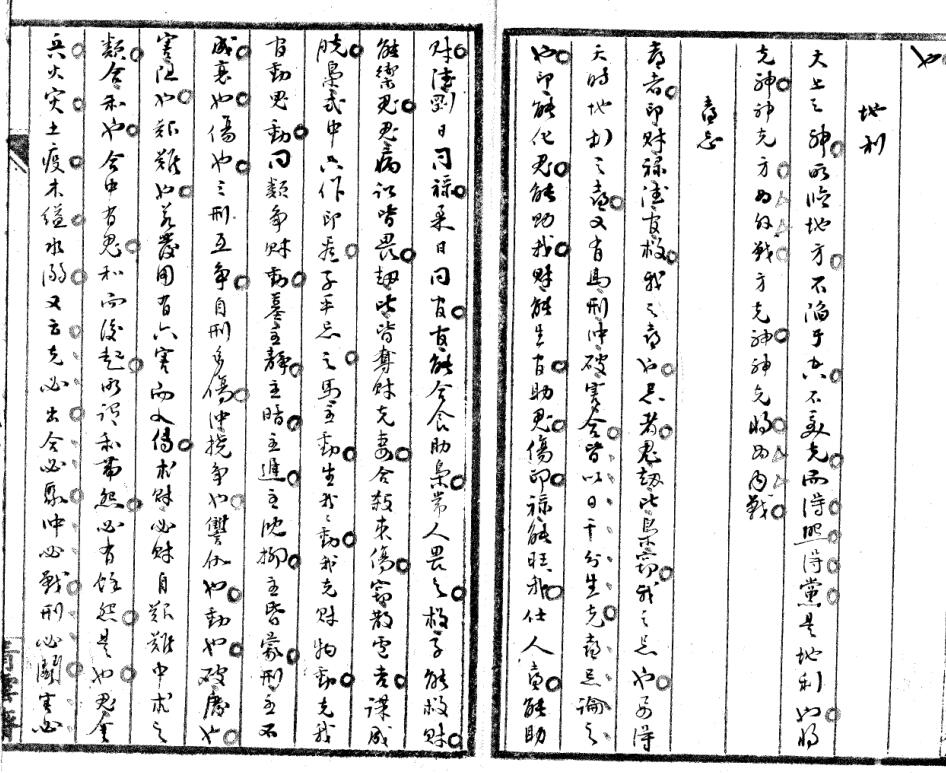 也
地利
天上之神所临地方不陷于空不受克而得照得黨是地利也將
克神神克方為外戰方克神神克將為內戰
喜忌
喜者即財祿德官救我之喜也忌者鬼劫比梟竊我之忌也若得
天時地利之喜又有馬刑冲破害合皆以日干分生克喜忌論之
也印能化鬼能助我財能生官助鬼傷印祿能旺我仕人喜能助
財德剛日同祿柔日同官官能合食助梟常人畏之救子能救財
能禦鬼鬼病訟皆畏劫比皆奪財克妻合殺來傷竊散虛者謀成
脫梟式中只作印看子平忌之馬主動生我我動我克財物動克我
官動鬼動同類爭財動墓主靜主暗主進主沈抑主昏蒙刑主不
成衰也傷也三刑互爭自刑多傷冲搅爭也讐仇也動也破廢也
害阻也艱難也若發用有六害而又傷求財必財自艱難中求之
類合和也合中有鬼和而後起所謂和带怨必有餘怨是也鬼金
兵火灾土疫木縊水溺又云克必出合必聚冲必戰刑必鬭害必